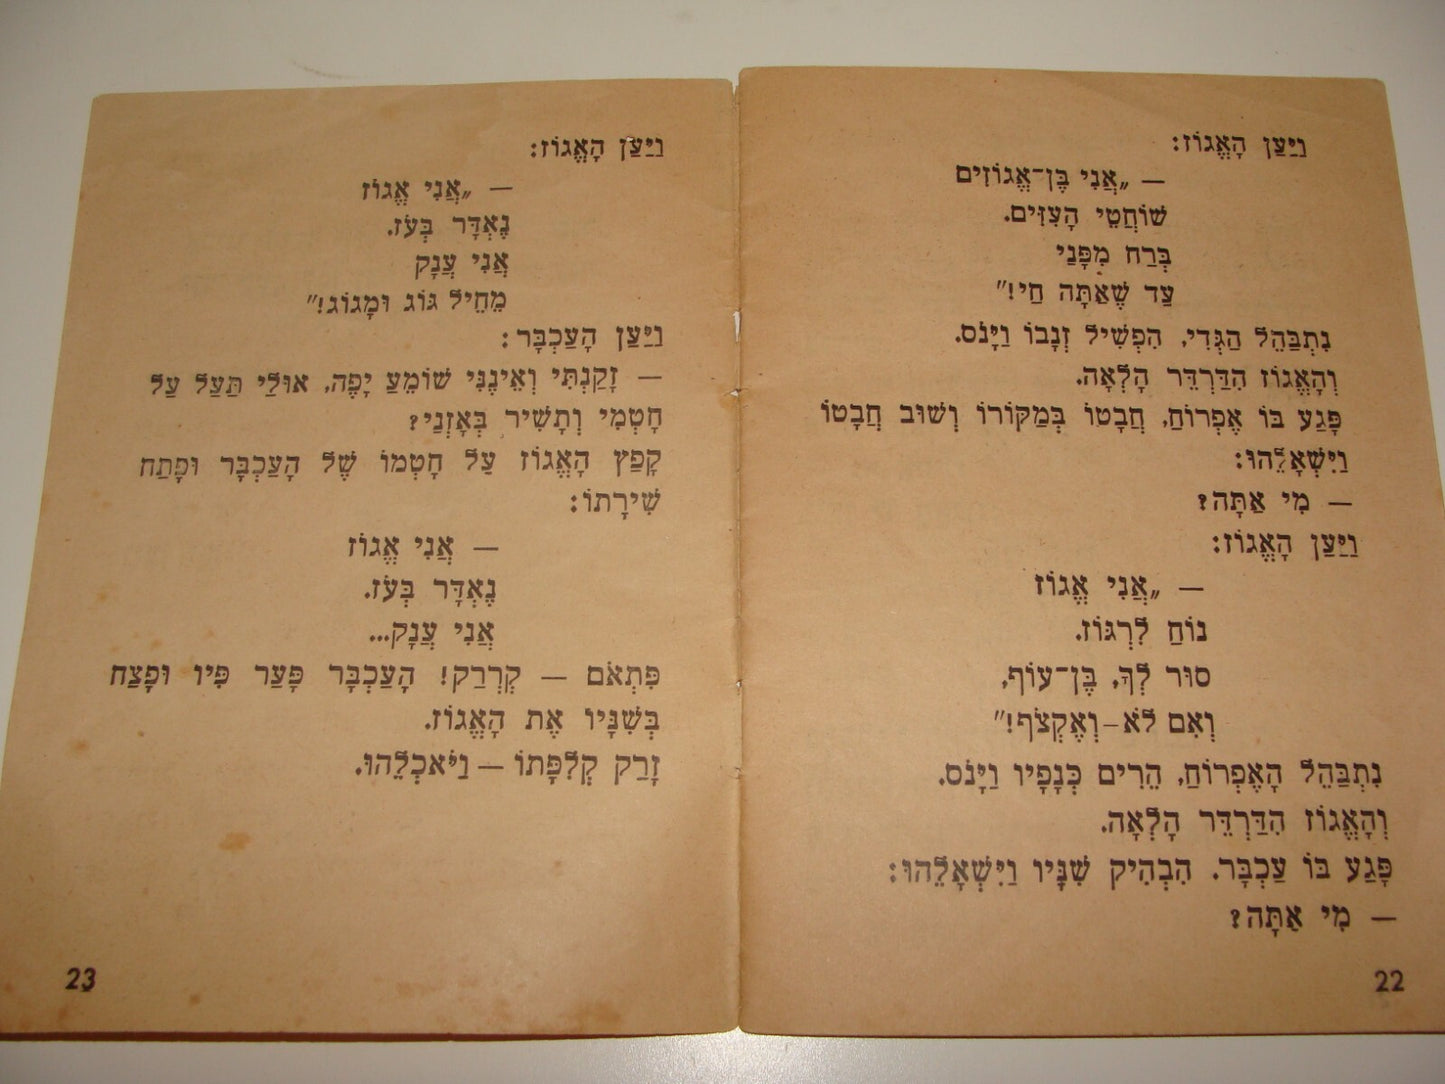 וַיַּעַן הָאֱגוֹז:
— „אֲנִי בֶּן־אֱגוֹזִים
שׁוֹחֲטֵי הָעִזִּים.
בְּרַח מִפָּנַי
עַד שֶׁאַתָּה חַי!”
נִתְבַּהֵל הַגְּדִי, הִפְשִׁיל זְנָבוֹ וַיָּנֹס.
וְהָאֱגוֹז הִדַּרְדֵּר הָלְאָה.
פָּגַע בּוֹ אֶפְרוֹחַ, חֲבָטוֹ בְּמַקּוֹרוֹ וְשׁוּב חֲבָטוֹ
וַיִּשְׁאָלֵהוּ:
— מִי אַתָּה?
וַיַּעַן הָאֱגוֹז:
— „אֲנִי אֱגוֹז
נוֹחַ לִרְגּוֹז.
סוּר לְךָ, בֶּן־עוֹף,
וְאִם לֹא–וְאֶקְצֹף!”
נִתְבַּהֵל הָאֶפְרוֹחַ, הֵרִים כְּנָפָיו וַיָּנֹס.
וְהָאֱגוֹז הִדַּרְדֵּר הָלְאָה.
פָּגַע בּוֹ עַכְבָּר. הִבְהִיק שִׁנָּיו וַיִּשְׁאָלֵהוּ:
— מִי אַתָּה?
22
וַיַּעַן הָאֱגוֹז:
— „אֲנִי אֱגוֹז
נֶאְדָּר בְּעֹז.
אֲנִי עֲנָק
מֵחֵיל גּוֹג וּמָגוֹג!”
וַיַּעַן הָעַכְבָּר:
— זָקַנְתִּי וְאֵינֶנִּי שׁוֹמֵעַ יָפֶה, אוּלַי תַּעַל עַל
חָטְמִי וְתָשִׁיר בְּאָזְנַי?
קָפַץ הָאֱגוֹז עַל חָטְמוֹ שֶׁל הָעַכְבָּר וּפָתַח
שִׁירָתוֹ:
— אֲנִי אֱגוֹז
נֶאְדָּר בְּעֹז.
אֲנִי עֲנָק...
פִּתְאֹם — קְרְרַק! הָעַכְבָּר פָּעַר פִּיו וּפָצַח
בְּשִׁנָּיו אֶת הָאֱגוֹז.
זָרַק קְלִפָּתוֹ — וַיֹּאכְלֵהוּ.
23